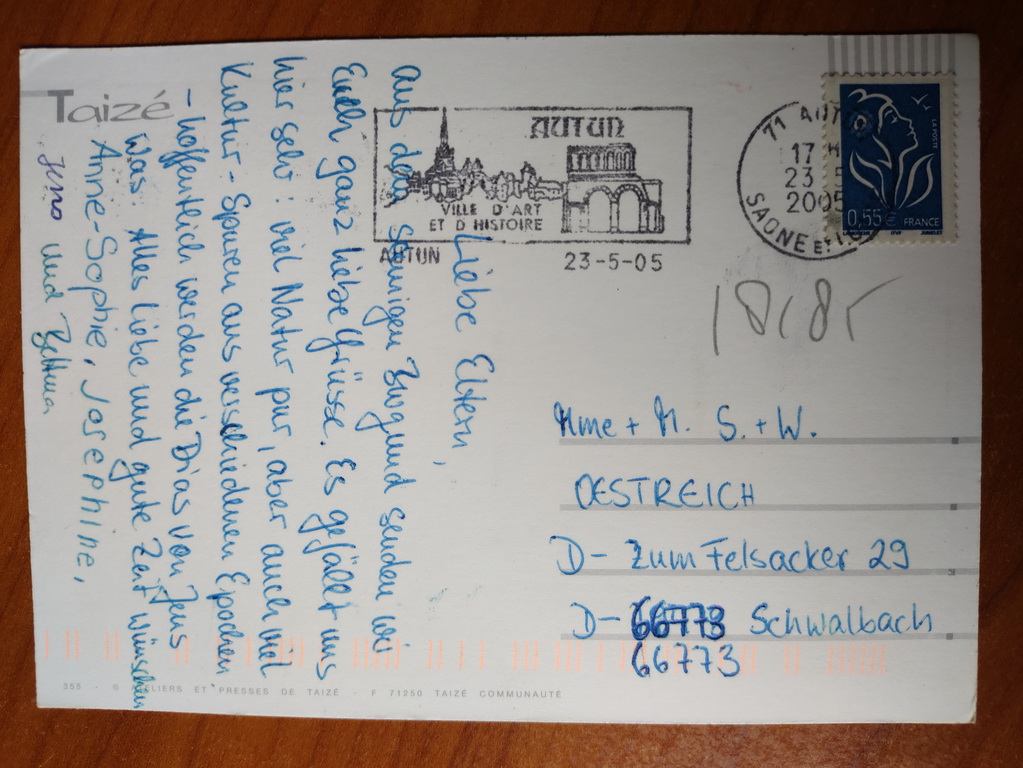 Taizé
AUTUN
VILLE D'ART
ET D'HISTOIRE
AUTUN
23-5-05
71 AUTUN
17 H
23 - 5
2005
SAONE ET
LA POSTE
0,55 € FRANCE
Liebe Eltern,
aus dem sonnigen Burgund senden wir
Euch ganz liebe Grüsse. Es gefällt uns
hier sehr: viel Natur pur, aber auch viel
Kultur - Spuren aus verschiedenen Epochen
- hoffentlich werden die Dias von Jens
was! Alles Liebe und gute Zeit wünschen
Anne-Sophie, Josephine,
Jens und Bettina
Mme + M. S. + W.
OESTREICH
D- Zum Felsacker 29
D- 66773 Schwalbach
66773
355 · © ATELIERS ET PRESSES DE TAIZÉ - F 71250 TAIZÉ COMMUNAUTÉ